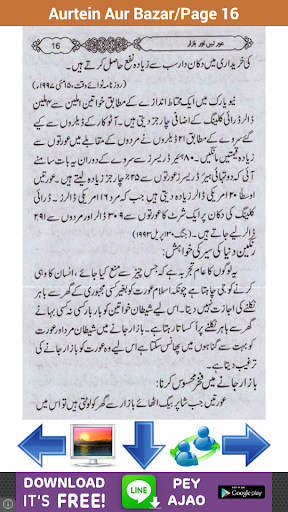 Aurtein Aur Bazar/Page 16
16
عورتیں اور بازار
کی خریداری میں دکان دار سب سے زیادہ نفع حاصل کرتے ہیں۔
(روزنامہ نوائے وقت، ۱۵ مئی ۱۹۹۷ء)
نیویارک میں ایک محتاط اندازے کے مطابق خواتین الین سے ۴ ملین
ڈالر ڈرائی کلینگ کے اضافی چارجز دیتی ہیں۔ آٹو کار کے ڈیلروں سے کیے
گئے سروے کے مطابق ۲۱ ڈیلروں نے مردوں کے مقابلے میں عورتوں سے
زیادہ قیمتیں مانگیں۔ ۸۰ ہیئر ڈریسرز سے سروے کے دوران یہ بات سامنے
آئی کہ دو تہائی ہیئر ڈریسرز عورتوں سے ۲۵% چارجز زیادہ لیتے ہیں۔ عورتیں
اوسطاً ۲۰ امریکی ڈالر دیتی ہیں، جب کہ مرد ۱۶ امریکی ڈالرز۔ ڈرائی
کلینگ کی دکان پر ایک شرٹ کا عورتوں سے ۳۰۹ ڈالر اور مردوں سے ۲۹۱
ڈالر لیے جاتے ہیں۔ (جنگ ۳۰ اپریل ۱۹۹۳)
رنگین دنیا کی سیر کی خواہش:
یہ لوگوں کا عام تجربہ ہے کہ جس چیز سے منع کیا جائے، انسان کا وہی
کرنے کو جی چاہتا ہے چونکہ اسلام عورت کو بغیر کسی مجبوری کے گھر سے باہر
نکلنے کی اجازت نہیں دیتا۔ اس لیے شیطان خواتین کو بار بار کسی نہ کسی بہانے
گھر سے باہر نکلنے پر اکساتا رہتا ہے۔ بازار جانے میں شیطان مرد اور عورت
کو بہت سے گناہوں میں پھانس سکتا ہے اس لیے وہ عورت کو بازار جانے کی
ترغیب دیتا ہے۔
بازار جانے میں فخر محسوس کرنا:
عورتیں جب شاپر بیگ اٹھائے بازار سے گھر کو لوٹتی ہیں تو اس میں
DOWNLOAD
IT'S FREE!
LINE
PEY
AJAO
GET IT ON
Google play